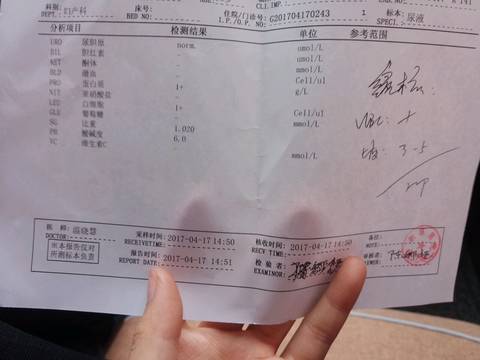 科别: 妇产科 床号: 标本: 尿液
BED NO: 住院/门诊号: G201704170243 SPECI.:
I.P./O.P. NO:
分析项目 检测结果 单位 参考范围
URO 尿胆原 norm. umol/L
BIL 胆红素 - umol/L
KET 酮体 - mmol/L
BLD 潜血 - Cell/ul
PRO 蛋白质 1+ g/L
NIT 亚硝酸盐 -
LEU 白细胞 1+ Cell/ul
GLU 葡萄糖 - mmol/L
SG 比重 1.020
PH 酸碱度 6.0
VC 维生素C - mmol/L
镜检:
WBC: +
3-5
/HP
医师: 温晓慧 采样时间: 2017-04-17 14:50 核收时间: 2017-04-17 14:50 备注:
DOCTOR: RECEIVETIME: RECV TIME: NOTE:
※本报告仅对 报告时间: 2017-04-17 14:51 检验者:
所测标本负责 REPORT DATE: EXAMINOR: